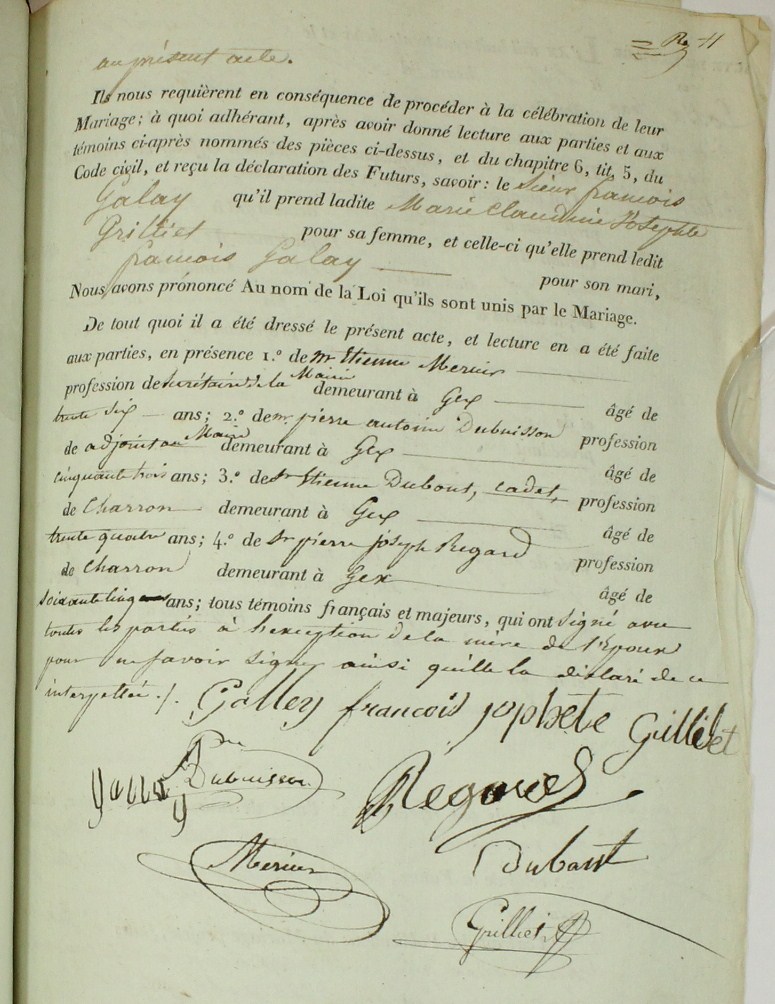 au présent acte.
Ils nous requièrent en conséquence de procéder à la célébration de leur
Mariage; à quoi adhérant, après avoir donné lecture aux parties et aux
témoins ci-après nommés des pièces ci-dessus, et du chapitre 6, tit. 5, du
Code civil, et reçu la déclaration des Futurs, savoir: le Sieur francois
Galay qu'il prend ladite Marie Claudine Josephte
Grilliet pour sa femme, et celle-ci qu'elle prend ledit
francois Galay pour son mari,
Nous avons prononcé Au nom de la Loi qu'ils sont unis par le Mariage.
De tout quoi il a été dressé le présent acte, et lecture en a été faite
aux parties, en présence 1.º de mr Etienne Mercier
profession de Secrétaire de la Mairie demeurant à Gex âgé de
trente six ans; 2.º de mr pierre antoine Dubuisson profession
de adjoint au Maire demeurant à Gex âgé de
cinquante trois ans; 3.º de Sr Etienne Dubout, cadet, profession
de Charron demeurant à Gex âgé de
trente quatre ans; 4.º de Sr pierre joseph Regard profession
de Charron demeurant à Gex âgé de
soixante cinq ans; tous témoins français et majeurs, qui ont signé avec
toutes les parties à l'exception de la mère de l'Epoux
pour ne savoir signer ainsi qu'elle l'a déclaré de ce
interpellée ./.
Galley francois josphete Grilliet
Dubuisson
Regard
Mercier
Dubout
Grilliet